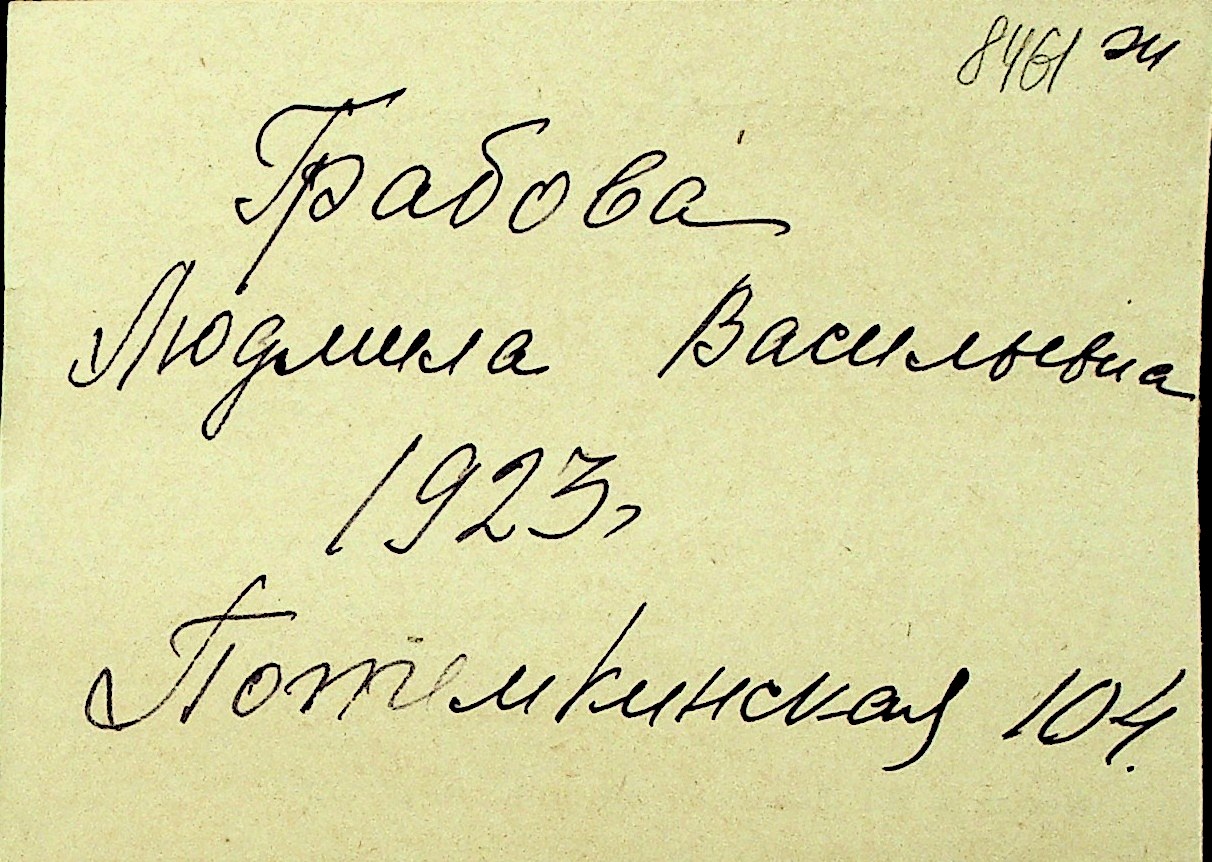 8461 ж
Грабова
Людмила Васильевна
1923г
Потёмкинская 104.